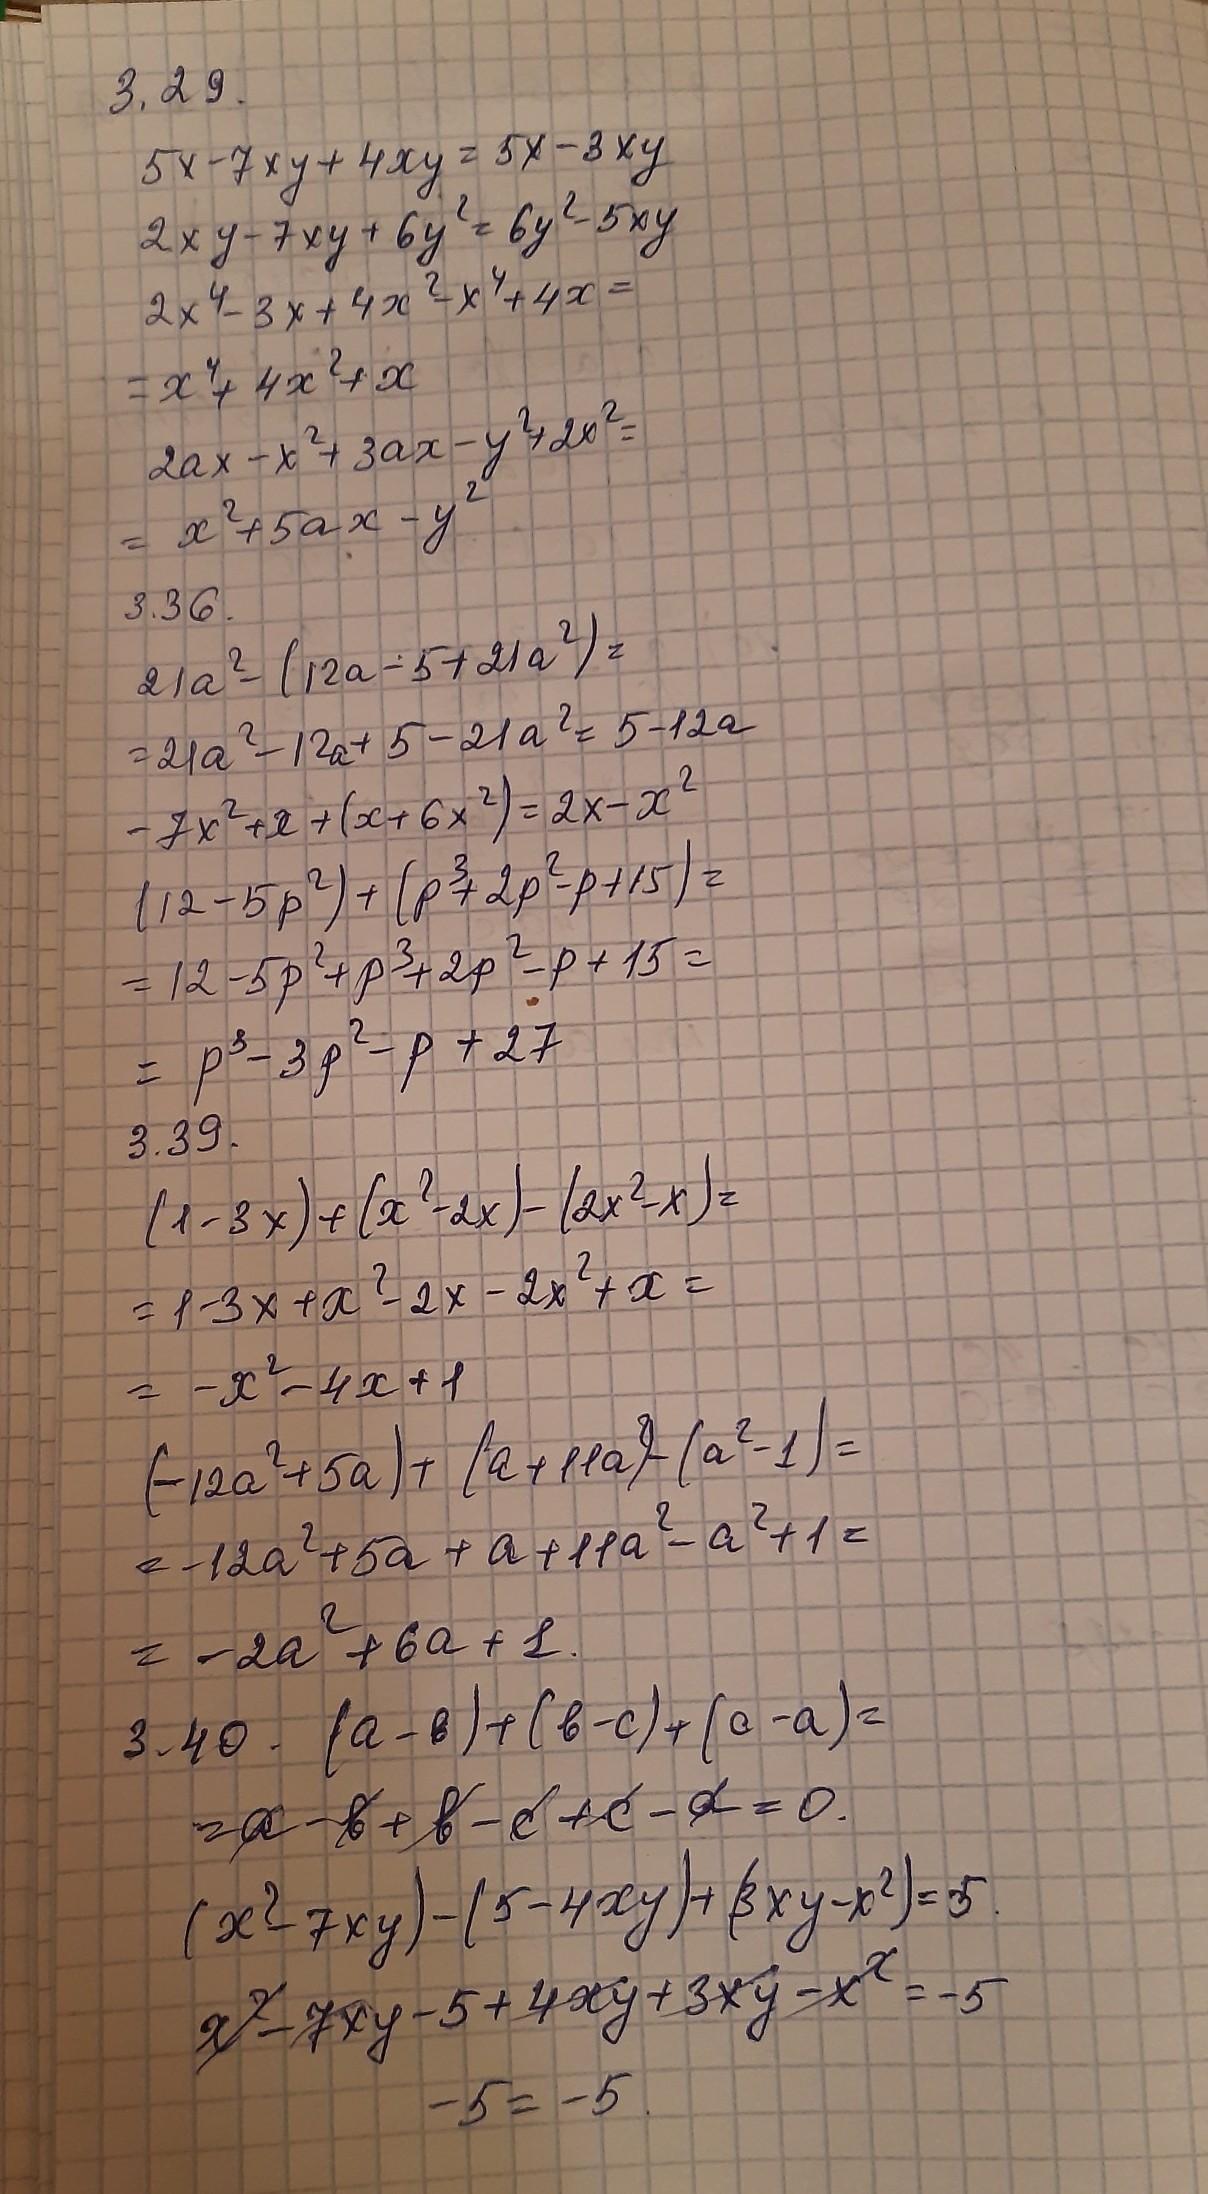 3.29.
5x-7xy+4xy=5x-3xy
2xy-7xy+6y²=6y²-5xy
2x⁴-3x+4x²-x⁴+4x=
=x⁴+4x²+x
2ax-x²+3ax-y²+2x²=
= x²+5ax-y²
3.36.
21a²-(12a-5+21a²)=
=21a²-12a+5-21a²=5-12a
-7x²+x+(x+6x²)=2x-x²
(12-5p²)+(p³+2p²-p+15)=
=12-5p²+p³+2p²-p+15=
= p³-3p²-p+27
3.39.
(1-3x)+(x²-2x)-(2x²-x)=
=1-3x+x²-2x-2x²+x=
= -x²-4x+1
(-12a²+5a)+(a+11a²)-(a²-1)=
=-12a²+5a+a+11a²-a²+1=
= -2a²+6a+1.
3.40. (a-в)+(в-c)+(c-a)=
=a-в+в-c+c-a=0.
(x²-7xy)-(5-4xy)+(3xy-x²)=5.
x²-7xy-5+4xy+3xy-x²=-5
-5=-5.